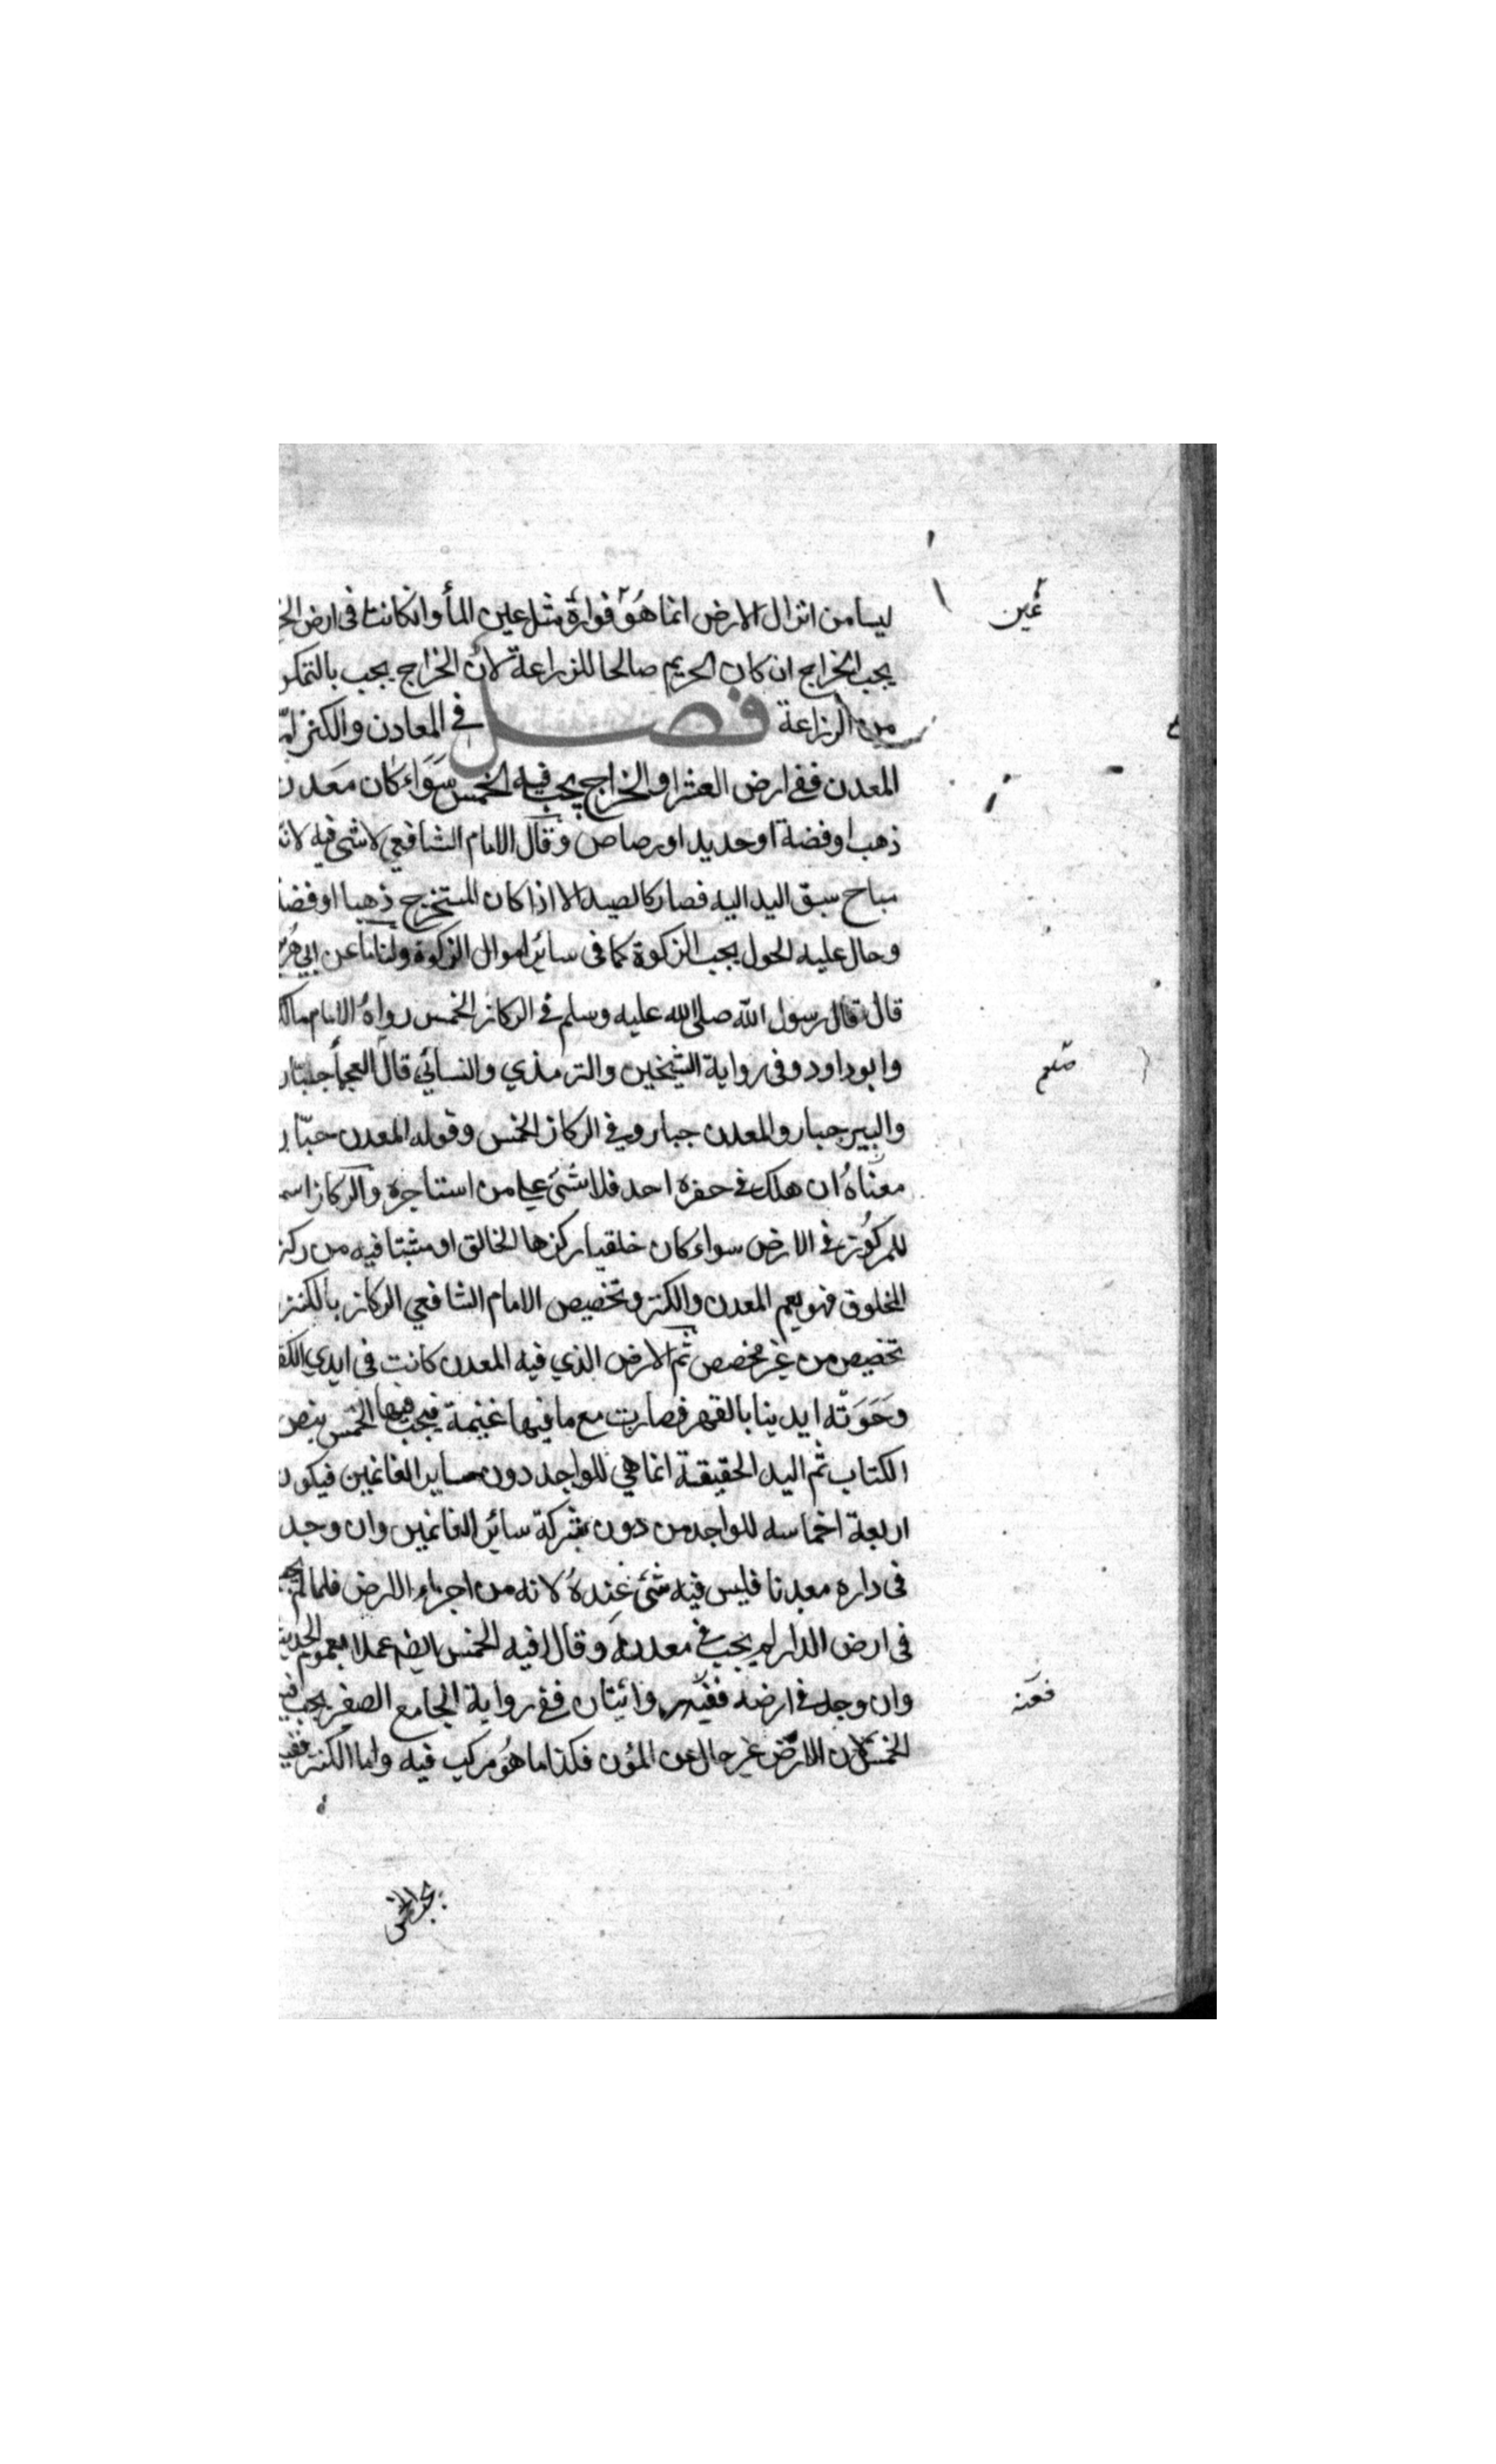 ليسا من انزال الارض انما هو فوارة مثل عين المأ وان كانت فى ارض
يجب الخراج ان كان الحريم صالحا للزراعة لان الخراج يجب بالتمكن
من الزراعة فصل في المعادن والكنز امّا
المعدن ففى ارض العشر او الخراج يجب فيه الخمس سَوَاء كان معدن
ذهب او فضة او حديد او رصاص وقال الامام الشافعي لا شى فيه لانه
مباح سبق اليد اليه فصار كالصيد الا اذا كان المستخرج ذهبا او فضة
وحال عليه الحول يجب الزكوة كما فى سائر اموال الزكوة ولنا ما عن ابي
قال قال رسول الله صلى الله عليه وسلم في الركاز الخمس رواه الامام مالك
وابو داود وفى رواية الشيخين والترمذي والنسائي قال العجمأ جبار
والبير جبار والمعدن جبار وفي الركاز الخمس وقوله المعدن جبّار
معناهُ ان هلك في حفره احد فلا شئ على من استاجره والركاز اسم
للمركوز في الارض سواء كان خلقيا ركزها الخالق او مثبتا فيه من ركز
المخلوق فهو يعم المعدن والكنز وتخصيص الامام الشافعي الركاز بالكنز
تخصيص من غير مخصص ثم الارض الذي فيه المعدن كانت فى ايدي
وحَوَته ايدينا بالقهر فصارت مع ما فيها غنيمة فيجب فيها الخمس بنص
الكتاب ثم اليد الحقيقة انما هي للواجد دون ساير الغانمين فيكون
اربعة اخماسه للواجد من دون شركة سائر الغانمين وان وجد
فى داره معدنا فليس فيه شئ عندهُ لانه من اجزاء الارض فلما لم
فى ارض الدار لم يجب في معدنه وقالا فيه الخمس ايضا عملا بعموم الحديث
وان وجد في ارضه ففيه روائيتان ففى رواية الجامع الصغير يجب فيه
الخمس لان الارض غير خال عن المؤن فكذا ما هو مركب فيه واما الكنز ففيه